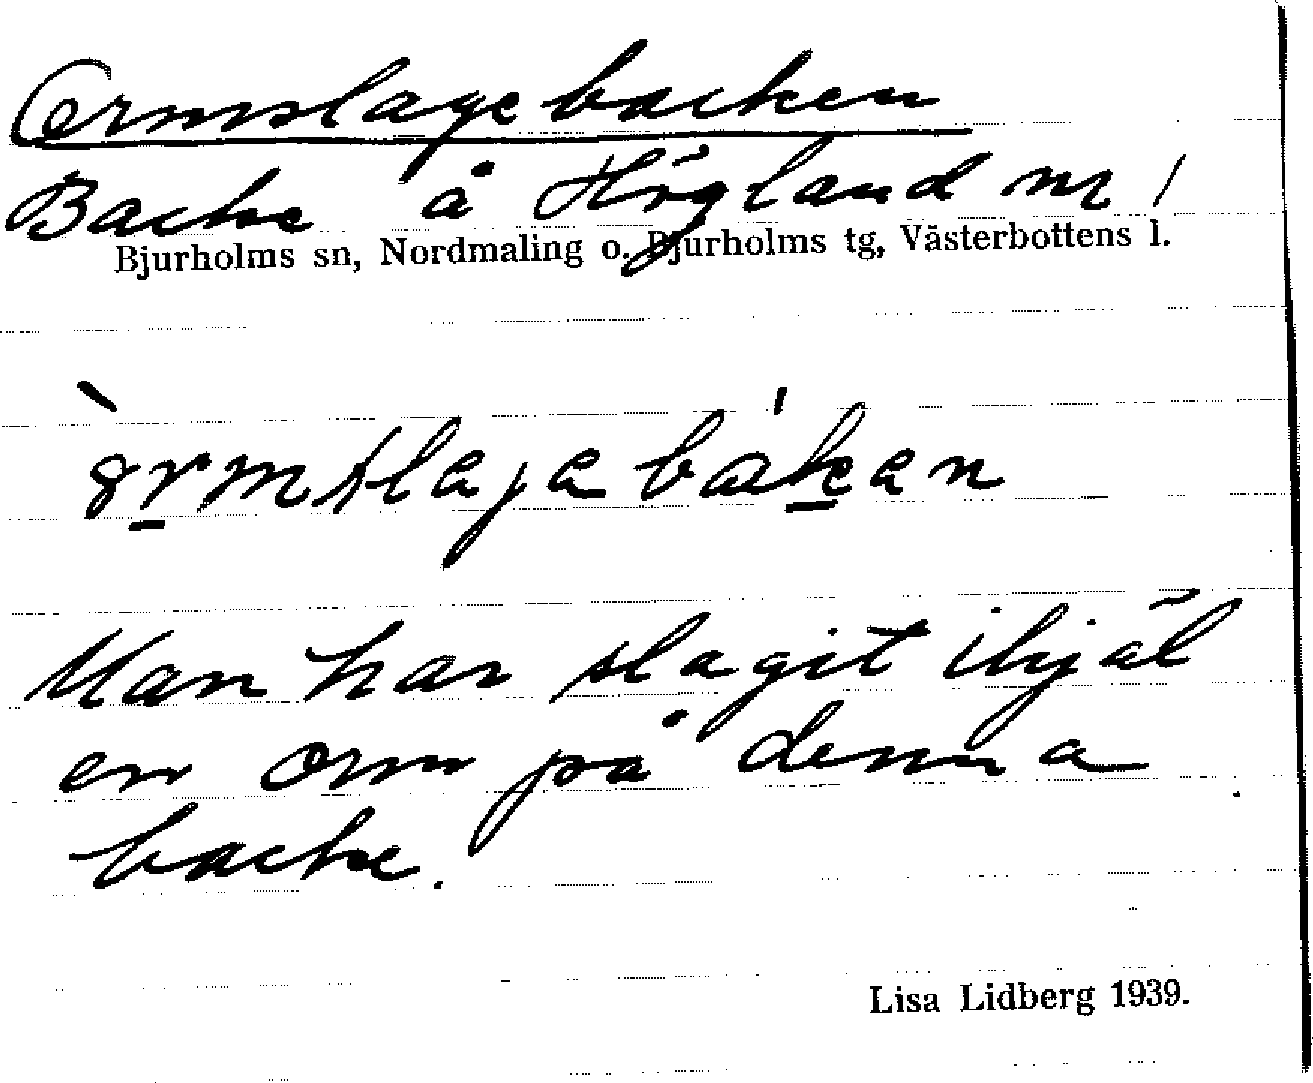 Ormslagebacken
Backe å Högland nr 1
Bjurholms sn, Nordmaling o. Bjurholms tg, Västerbottens l.
Man har slagit ihjäl
en orm på denna
backe.
Lisa Lidberg 1939.